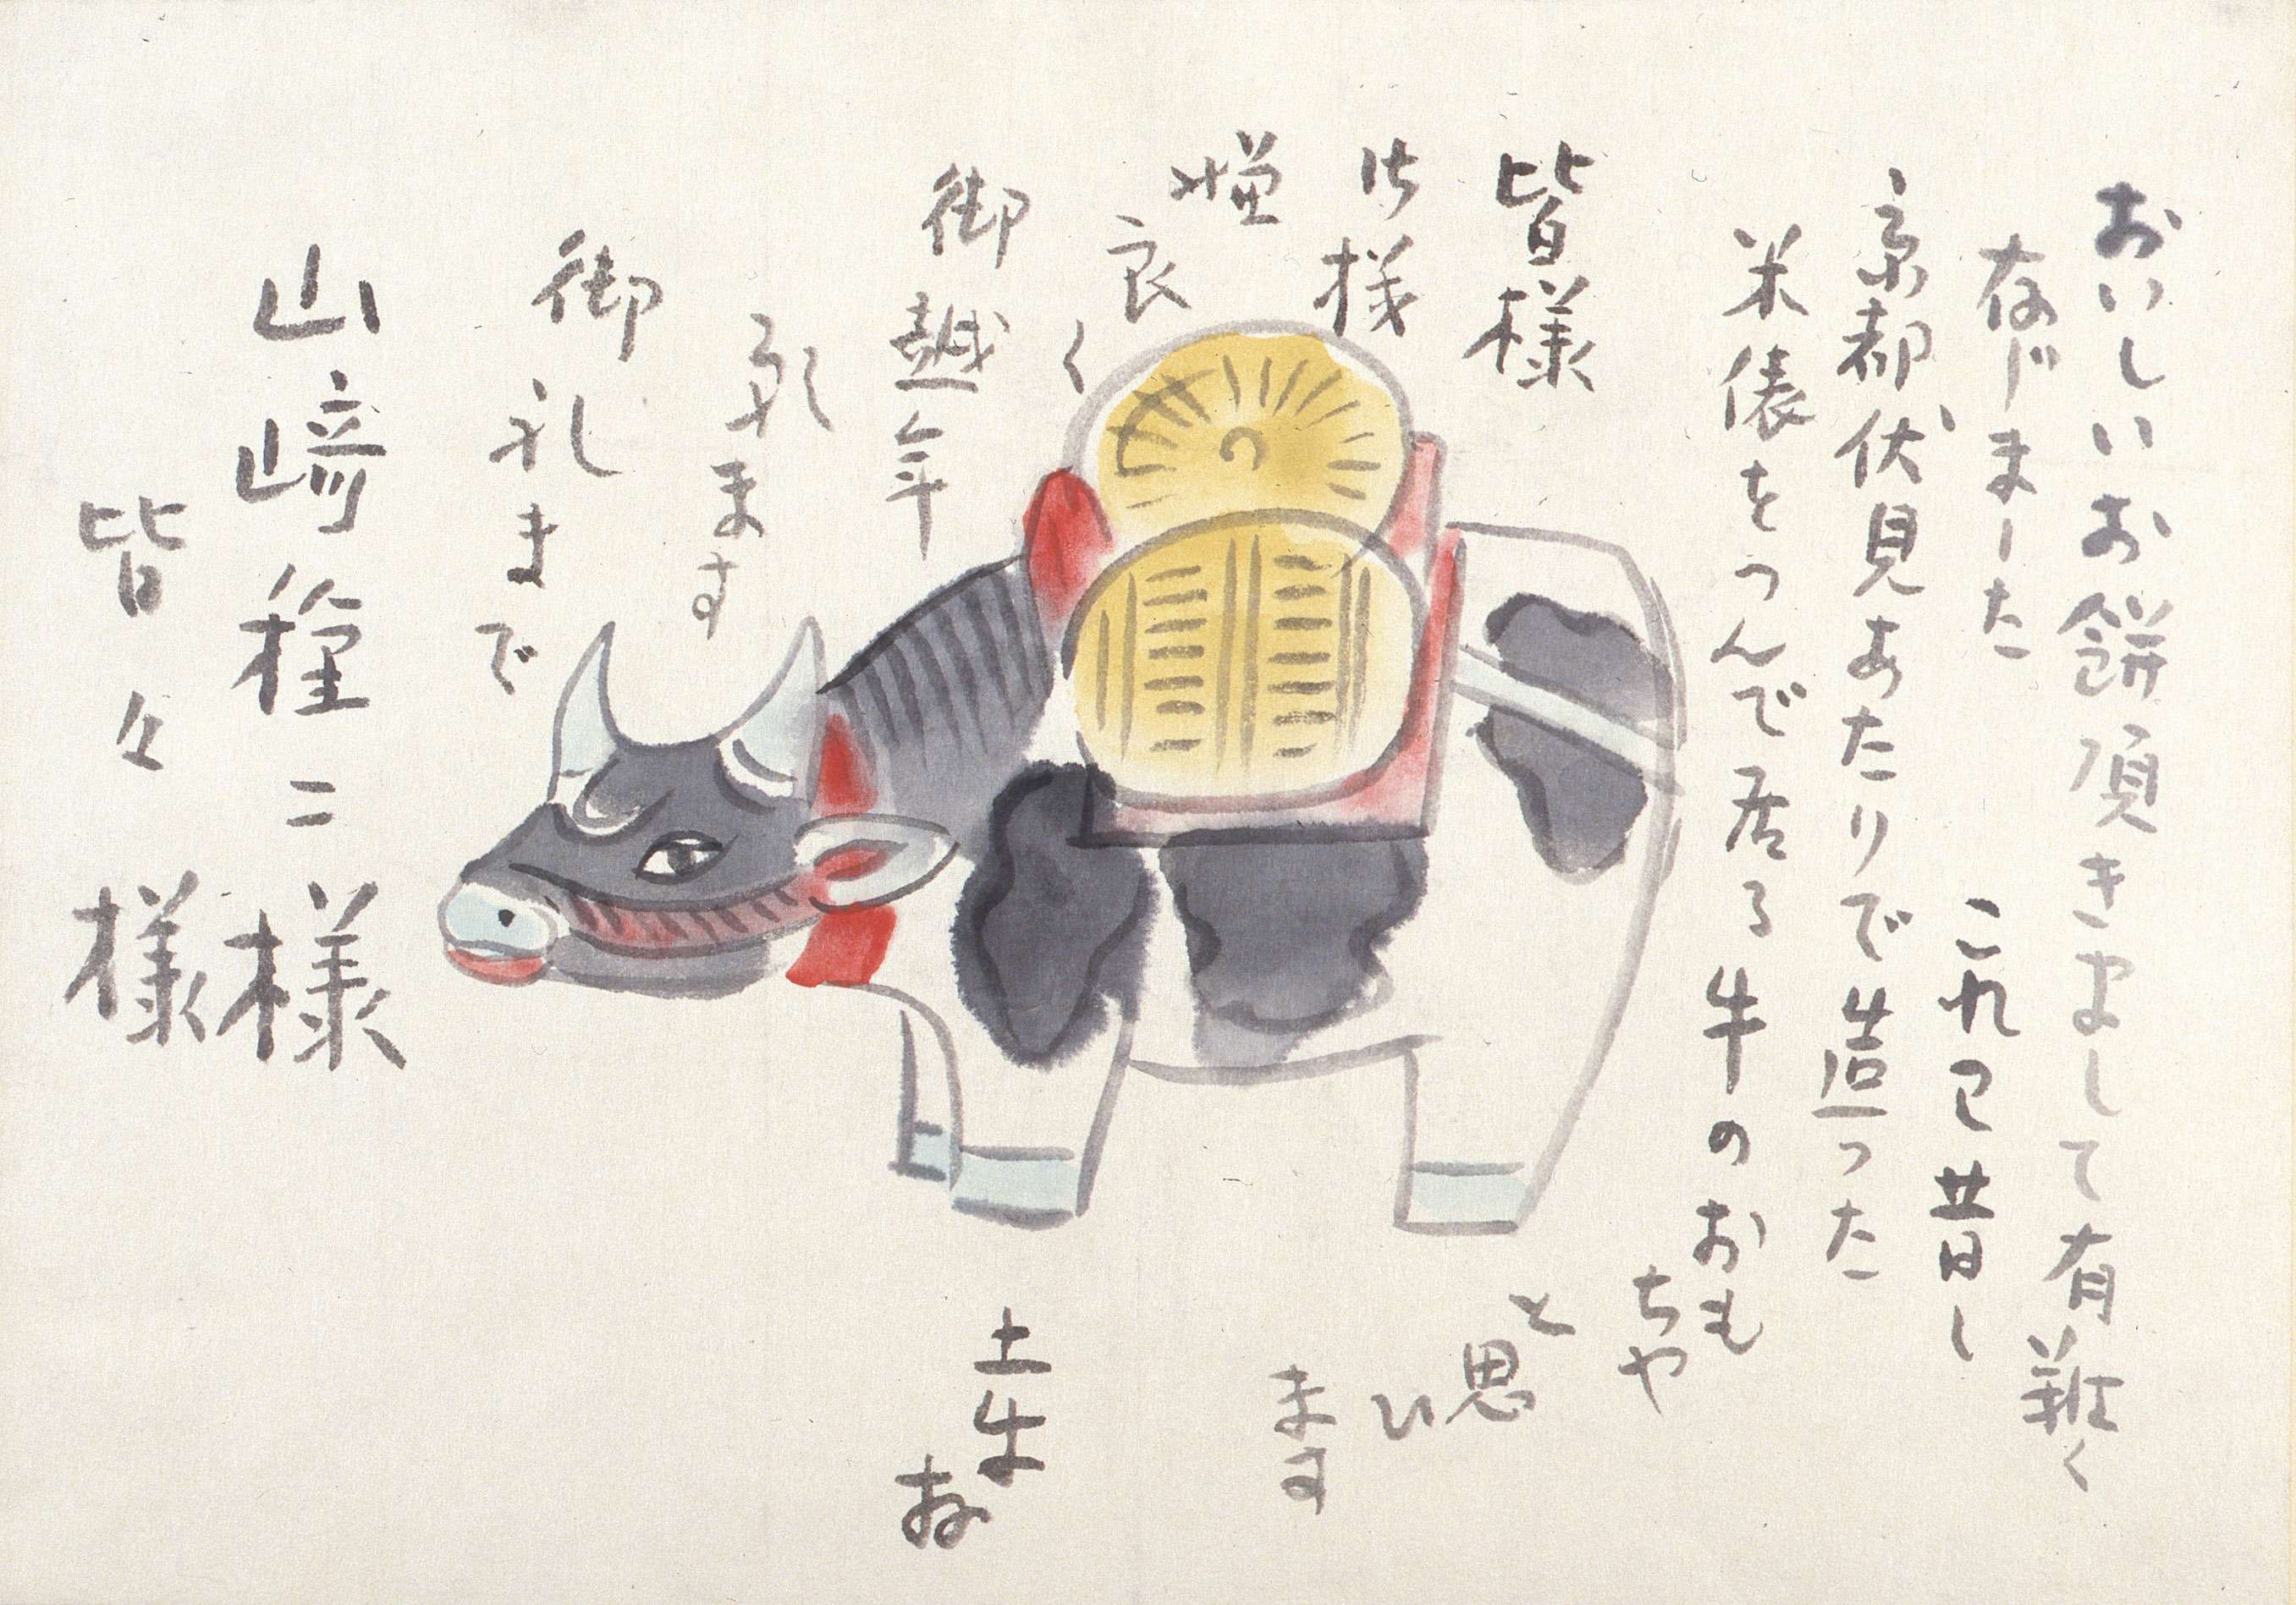 おいしいお餅頂きまして有難く
存じました これは昔し
京都伏見あたりで造った
米俵をつんで居る牛のおも
ちや
と思
ひ
ます
皆様
御機
嫌
良
く
御越年
願ます
御礼まで
土牛
山﨑種二様
皆々様